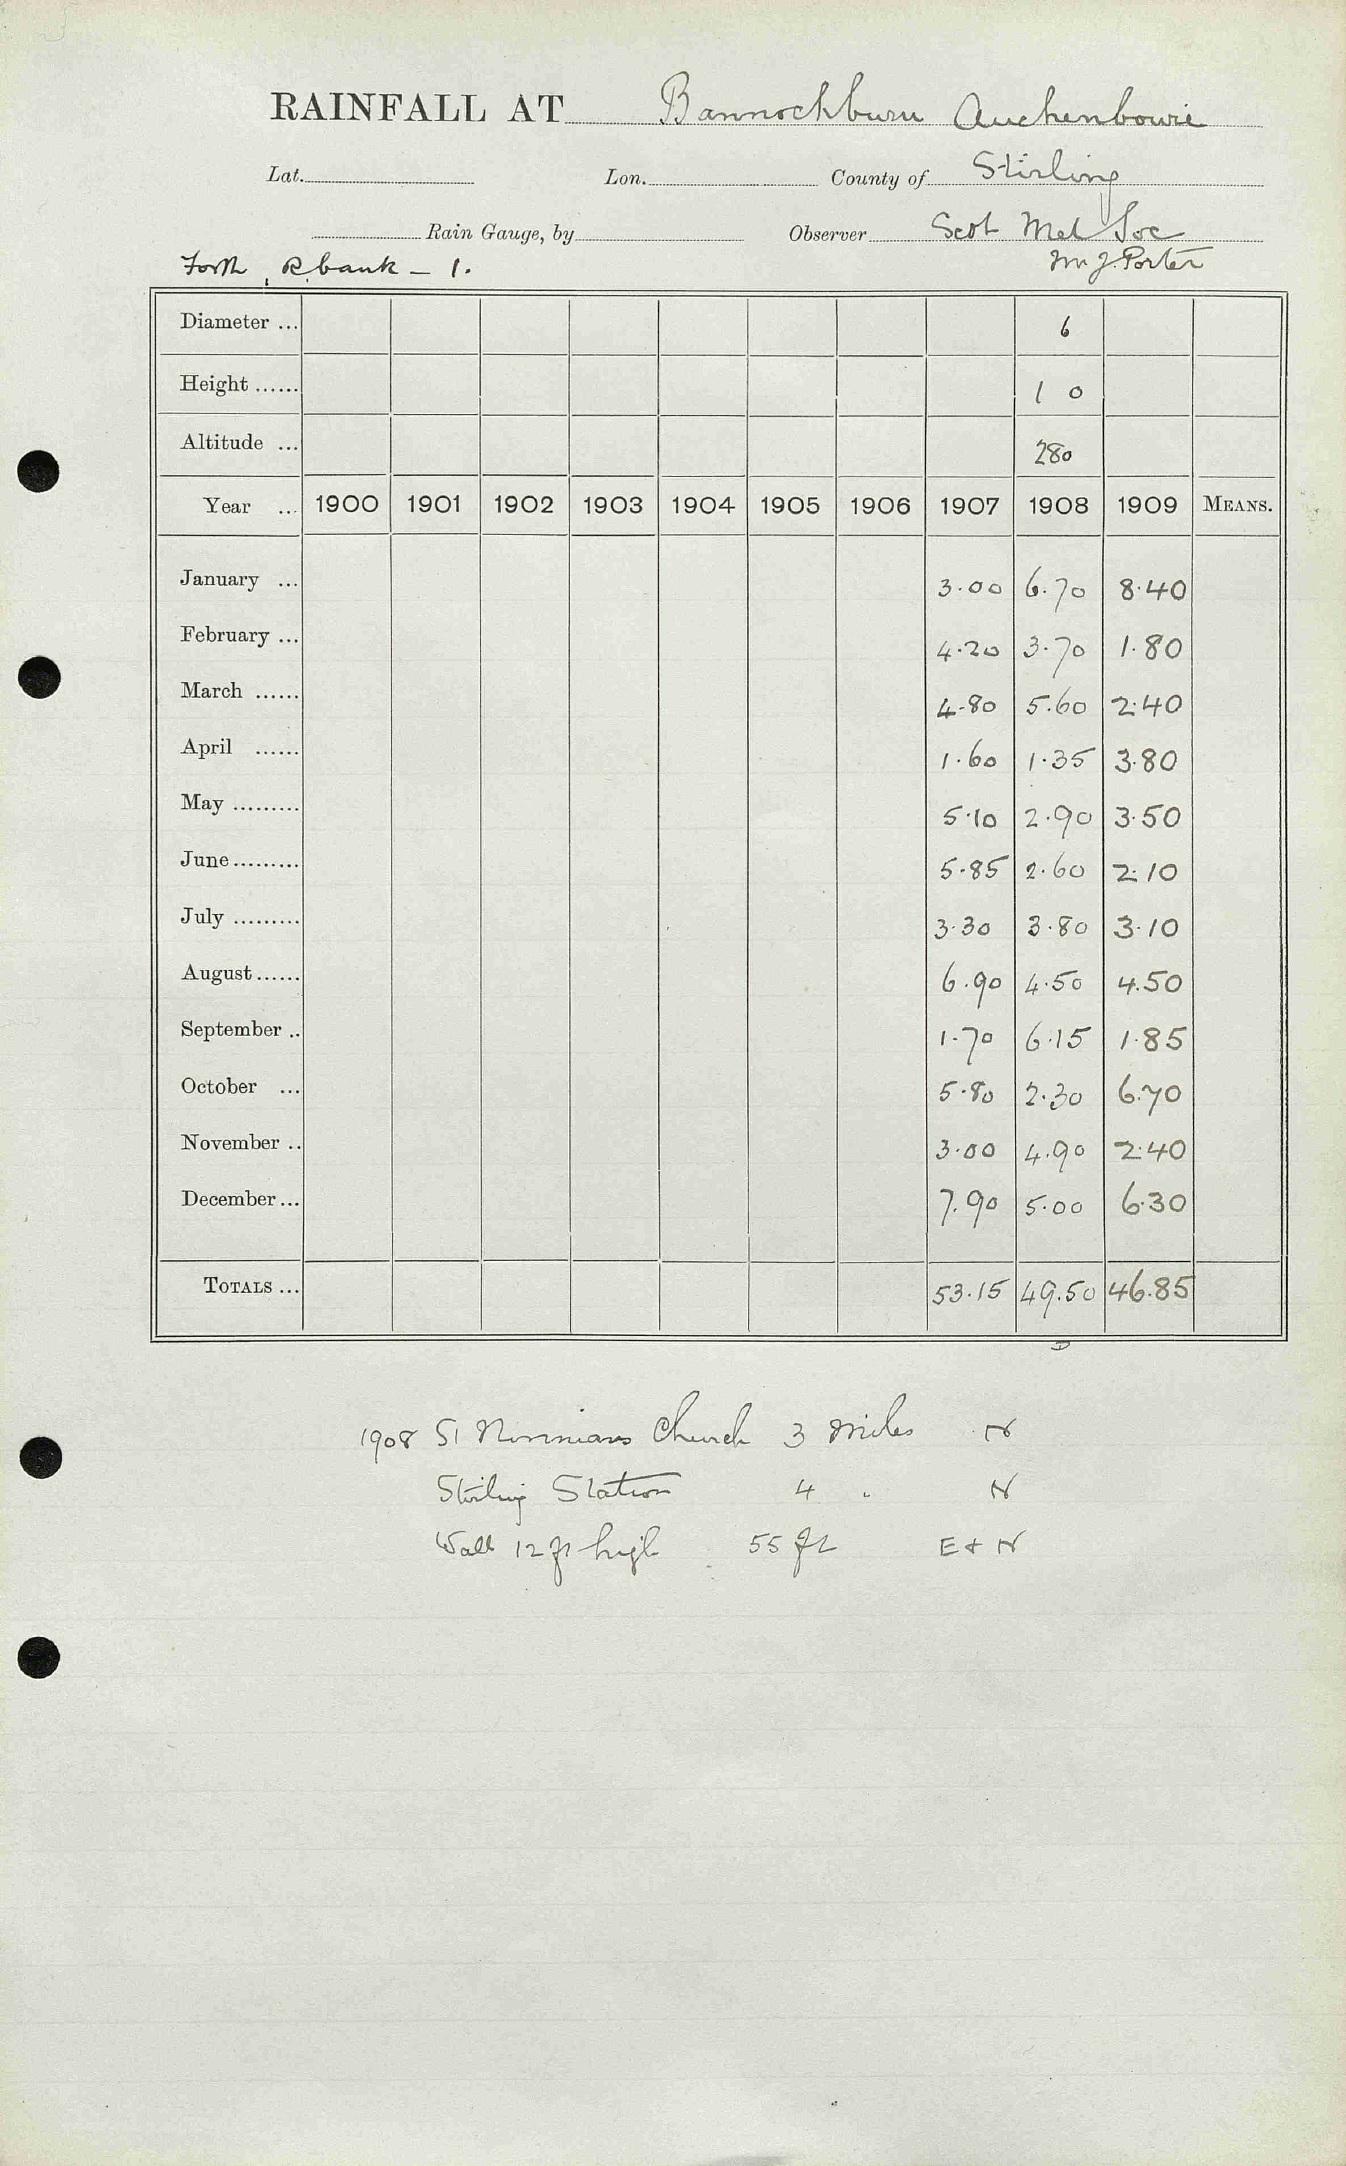 RAINFALL AT Bannockburn Auchenbowie
Lat. Lon. County of Stirling
Rain Gauge, by Observer Scot Met Soc
Forth R bank – 1. Mr J. Porter
Diameter ... 6
Height ...... 1 0
Altitude ... 280
Year ... 1900 1901 1902 1903 1904 1905 1906 1907 1908 1909 MEANS.
January ... 3.00 6.70 8.40
February ... 4.20 3.70 1.80
March ...... 4.80 5.60 2.40
April ...... 1.60 1.35 3.80
May ......... 5.10 2.90 3.50
June ......... 5.85 2.60 2.10
July ......... 3.30 3.80 3.10
August ...... 6.90 4.50 4.50
September .. 1.70 6.15 1.85
October ... 5.80 2.30 6.70
November .. 3.00 4.90 2.40
December ... 7.90 5.00 6.30
TOTALS ... 53.15 49.50 46.85
1908 St Ninnians Church 3 Miles N
Stirling Station 4 " N
Wall 12 ft high 55 ft E + N